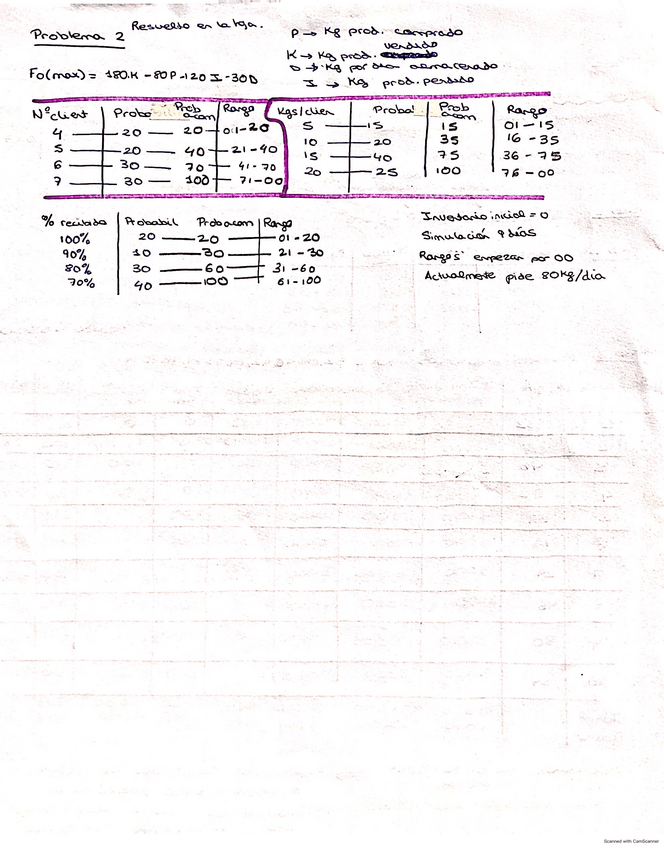 Resuelto en la hoja.
Problema 2
P → Kg prod. comprado
K → Kg prod. vendido
D → Kg por día almacenado
I → Kg prod. perdido
Fo(max) = 180.K - 80P - 120I - 30D
N° client | Probab | Prob acom | Rango
4 — 20 — 20 - 01-20
5 — 20 — 40 - 21-40
6 — 30 — 70 - 41-70
7 — 30 — 100 - 71-00
Kgs/clien | Probab | Prob acom | Rango
5 — 15 | 15 | 01-15
10 — 20 | 35 | 16-35
15 — 40 | 75 | 36-75
20 — 25 | 100 | 76-00
% recibido | Probabil Prob acom | Rango
100% 20 — 20 — 01-20
90% 10 — 30 — 21-30
80% 30 — 60 — 31-60
70% 40 — 100 — 61-100
Inventario inicial = 0
Simulación 9 días
Rangos empezar por 00
Actualmente pide 80Kg/día
Scanned with CamScanner